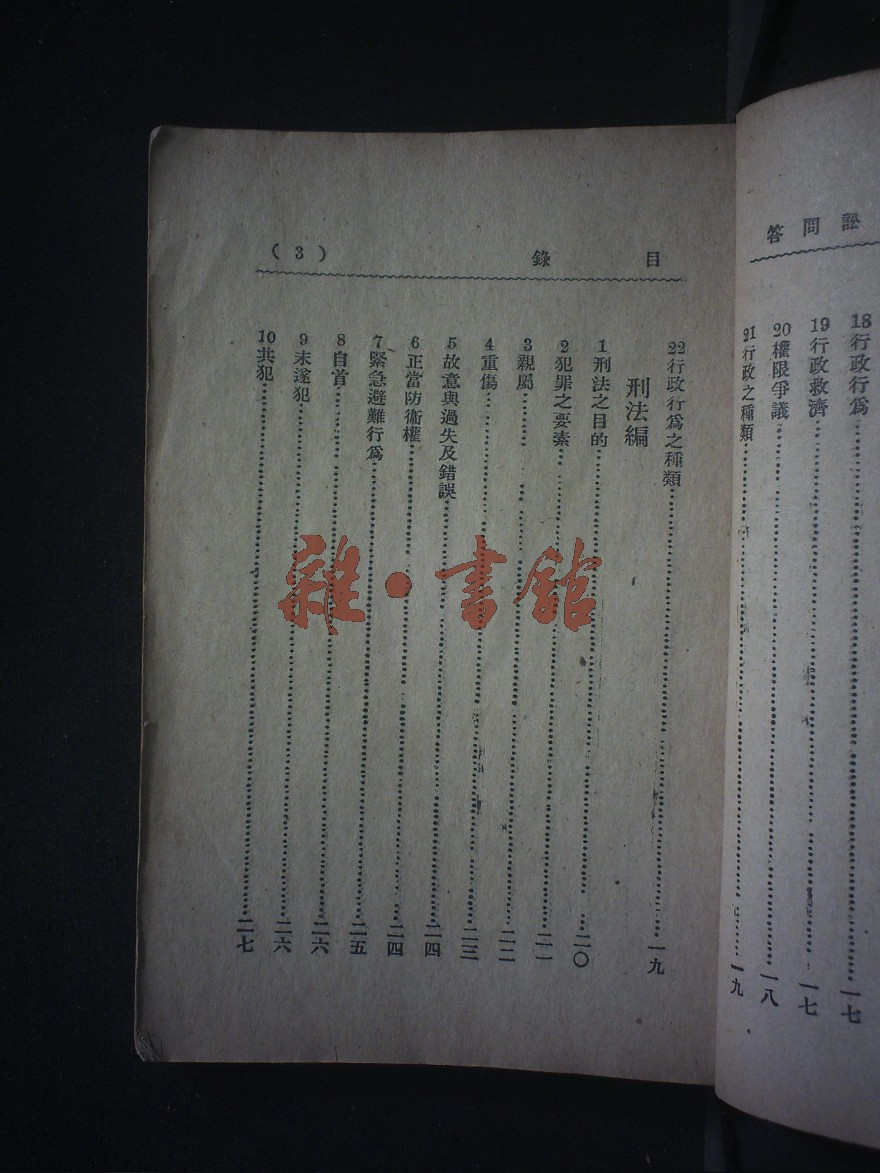 訟問答
18行政行爲……一七
19行政救濟……一七
20權限爭議……一八
21行政之種類……一九
目錄
(3)
22行政行爲之種類……一九
刑法編
1刑法之目的……二〇
2犯罪之要素……二一
3親屬……二二
4重傷……二三
5故意與過失及錯誤……二四
6正當防衞權……二四
7緊急避難行爲……二五
8自首……二六
9未遂犯……二六
10共犯……二七
雜·書館